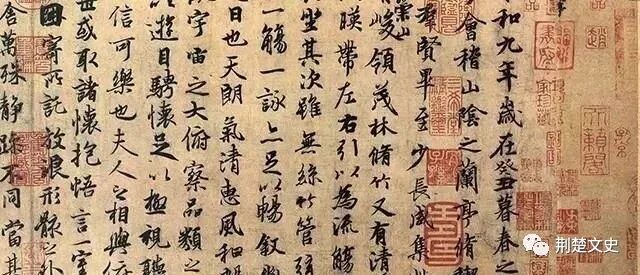 和九年歲在癸丑暮春之
會稽山陰之蘭亭脩禊
群賢畢至少長咸集
崇山
有峻領茂林脩竹又有清
暎帶左右引以為流觴
坐其次雖無絲竹管弦
一觴一詠亦足以暢敘
日也天朗氣清惠風和暢
宇宙之大俯察品類之
以遊目騁懷足以極視聽
信可樂也夫人之相與俯
世或取諸懷抱悟言一室
因寄所託放浪形骸之外
舍萬殊靜躁不同當其
荆楚文史